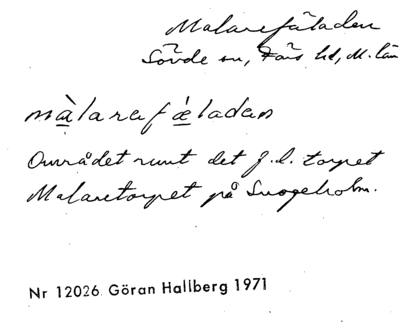 Malarefäladen
Sövde sn, Färs hd, M. län
màlarafǽladan
Området runt det f.d. torpet
Malaretorpet på Snogeholm.
Nr 12026. Göran Hallberg 1971